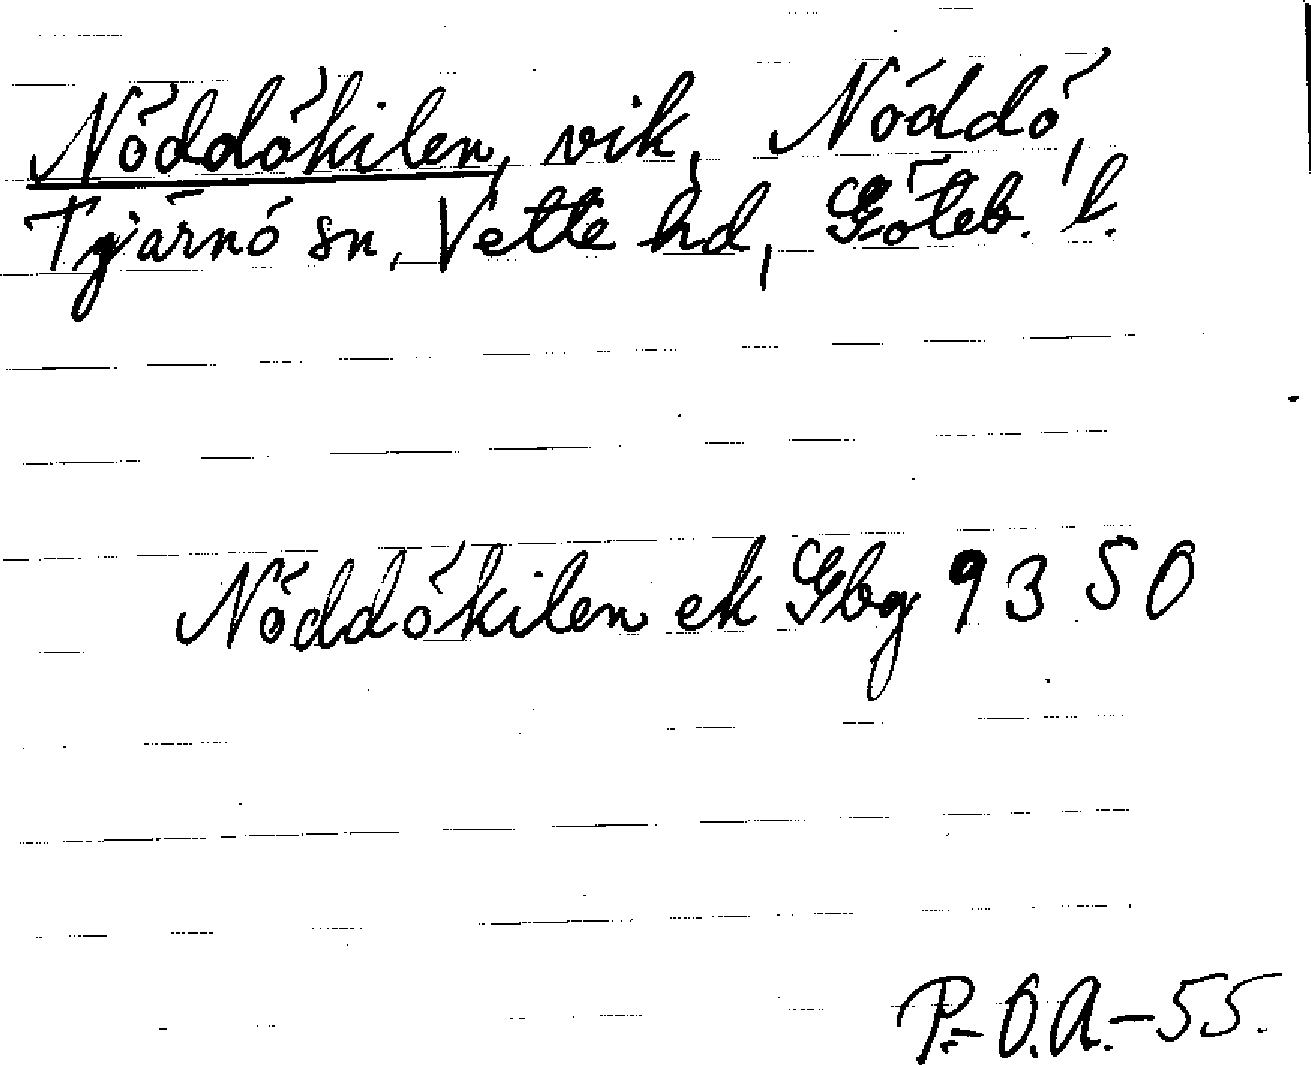 Nöddökilen, vik, Nöddö,
Tjärnö sn, Vette hd, Göteb. l.
Nöddökilen ek Gbg 93 50
P.-O.A.-55.